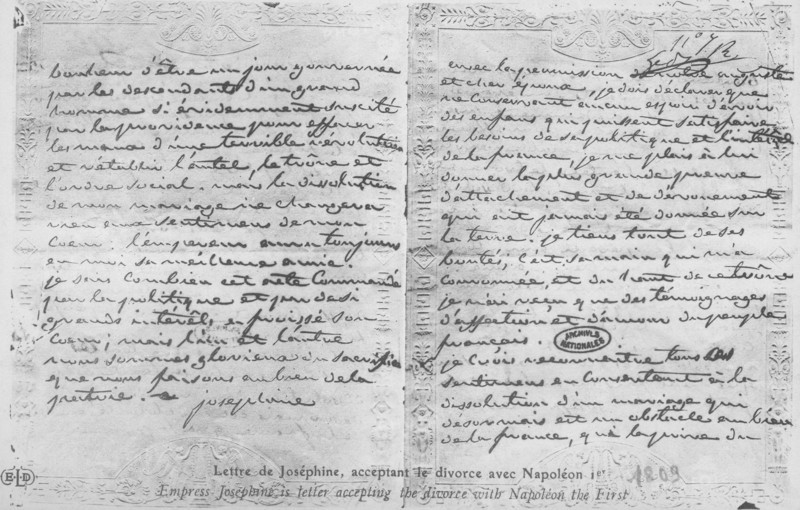 avec la permission de notre auguste
et cher époux, je dois déclarer que
ne conservant aucun espoir d'avoir
des enfans qui puissent satisfaire
les besoins de sa politique et l'intérêt
de la france, je me plais à lui
donner la plus grande preuve
d'attachement et de dévouement
qui ait jamais été donnée sur
la terre. je tiens tout de ses
bontés; c'est sa main qui m'a
couronnée, et du haut de ce trône
je n'ai reçu que des témoignages
d'affection et d'amour du peuple
français.
ARCHIVES
NATIONALES
je crois reconnaitre tous ces
sentimens en consentant à la
dissolution d'un mariage qui
désormais est un obstacle au bien
de la france, qui la prive du
bonheur d'être un jour gouvernée
par les descendants d'un grand
homme si évidemment suscité
par la providence pour effacer
les maux d'une terrible révolution
et rétablir l'autel, le trône et
l'ordre social. mais la dissolution
de mon mariage ne changera
rien aux sentimens de mon
coeur. l'empereur aura toujours
en moi sa meilleure amie.
je sais combien cet acte commandé
par la politique et par de si
grands intérêts, a froissé son
coeur; mais l'un et l'autre
nous sommes glorieux du sacrifice
que nous faisons au bien de la
patrie.
josephine
ELD
Lettre de Joséphine, acceptant le divorce avec Napoléon 1er
1809
Empress Joséphine is letter accepting the divorce with Napoléon the First